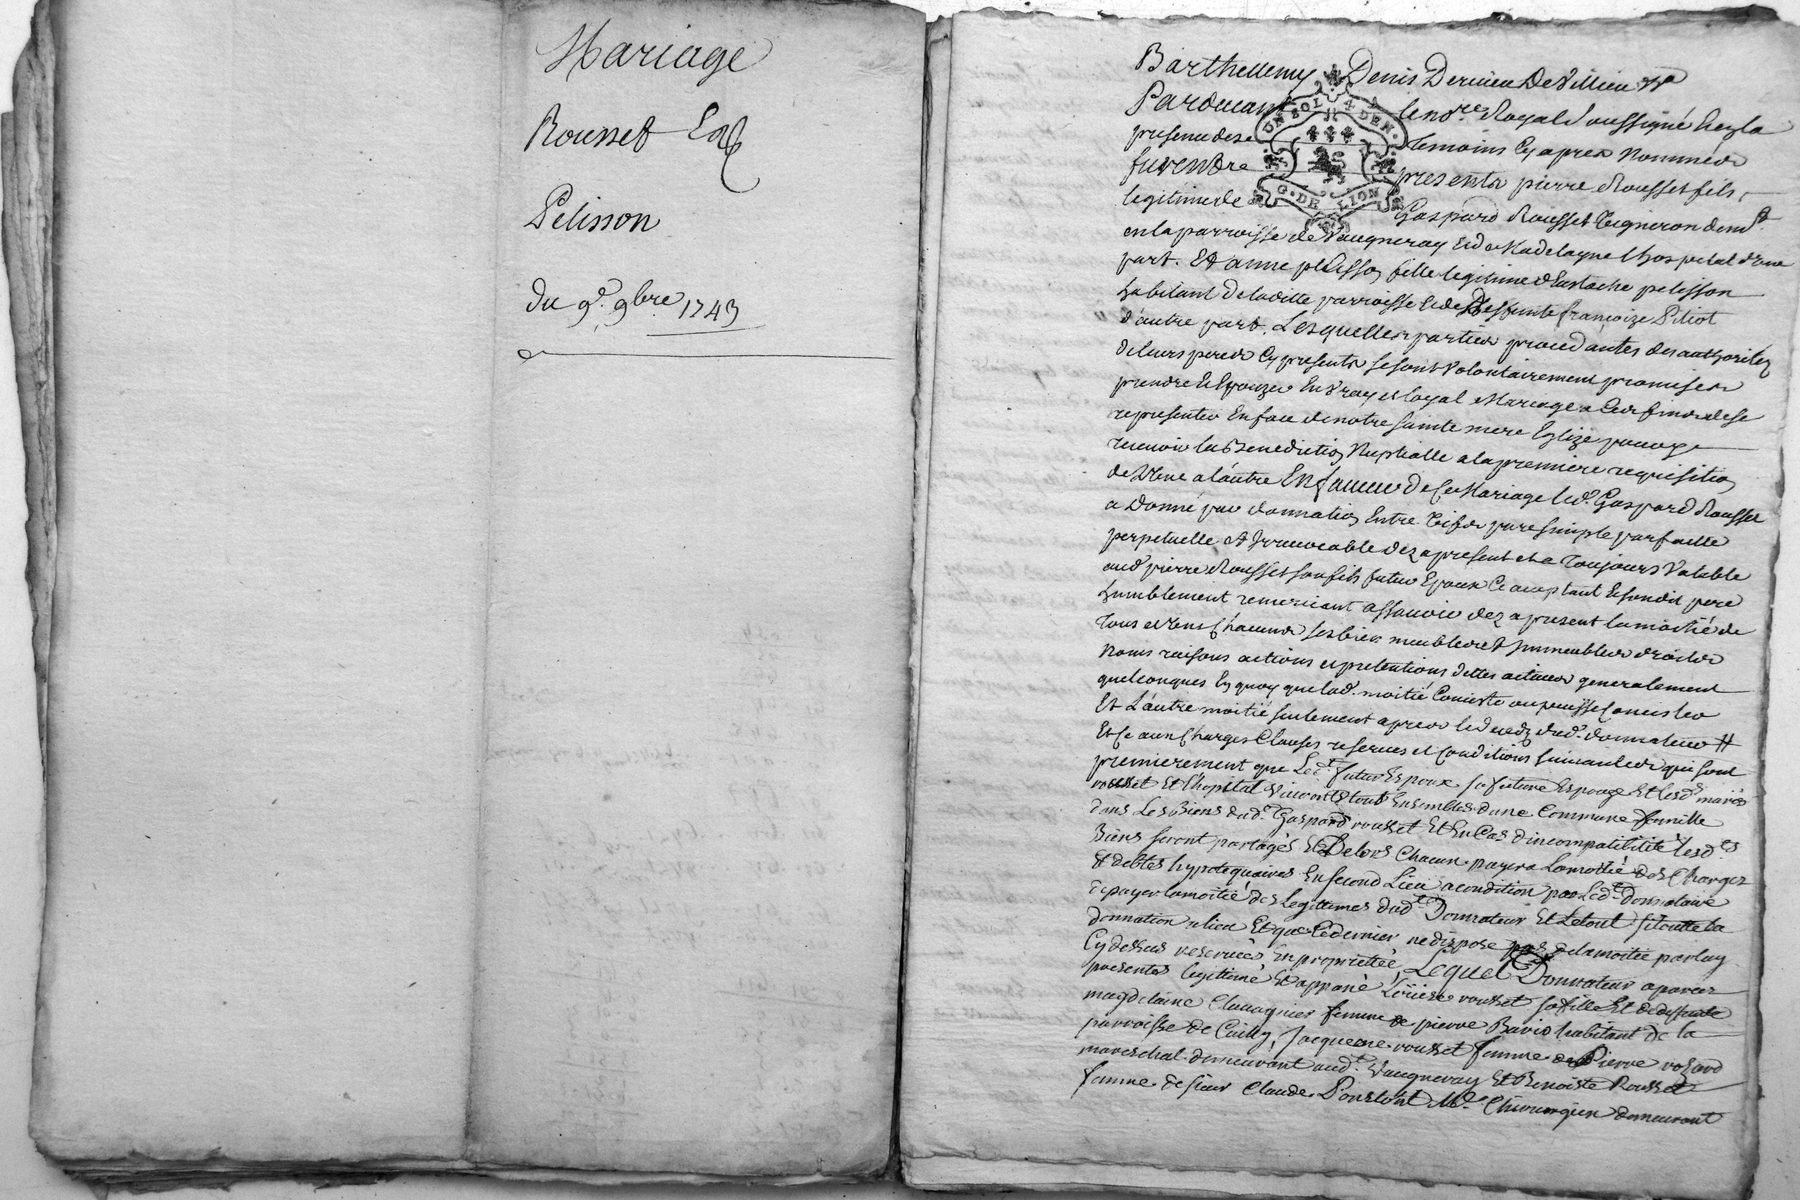 Mariage
Rousset Et
Pelisson
du 9e. 9bre 1743
Barthellemy Denis Derieu De Villieu
Pardevant le nore. Royal soussigné Et en la
presence des temoins Cy apres Nommés
furent presents pierre Rousset fils
legitime de Gaspard Rousset Vigneron demt.
en la parroisse de Vaugneray Et de Madelayne lhospital d'une
part. Et anne pelisson fille legitime d'Eustache pelisson
habitant de ladite parroisse Et de Deffunte françoize Pitiot
d'autre part. Lesquelles parties procedantes des authoritez
de leurs peres Cy presents se sont Volontairement promises
prendre Et Epouzer En Vray et loyal Mariage a Ces fins de se
representer En face de notre sainte mere Eglize pour y
recevoir la Benediction Nuptialle a la premiere requisition
de L'une a l'autre En faveur de Ce Mariage led. Gaspard Rousset
a Donné par donnation Entre Vifs pure simple parfaitte
perpetuelle Et Irrevocable dez a present et a Toujours Valable
aud. pierre Rousset son fils futur Epoux Ce acceptant Et sondit pere
humblement remerciant assavoir dez a present la moitié de
Tous et Uns Chacuns ses biens meubles Et Immeubles droits
Noms raisons actions et pretentions dettes actives generalement
quelconques En quoy que lad. moitié Conciste ou puisse Concister
Et L'autre moitié seulement apres le decedz dud. donnateur #
Et Ce aux Charges Clauses reserves et Conditions suivantes qui sont
premierement que Ledt. futur Espoux sa future Espouze Et lesds. mariés
rousset Et l'hopital vivront tous Ensembles dune Commune famille
dans Les Biens dudt. Gaspard rousset Et En Cas d'incompatibilité lesdts.
Biens seront partagés Et Delors Chacun payera La moitié des Charges
Et debtes hypotequaires En second Lieu a condition par Ledt. donnataire
de payer la moitié des Legittimes dudt. Donnateur Et Letout si toutte la
donnation a lieu Et que Ce dernier ne dispose pas de la moitié par luy
Cy dessus reservée En proprietée Lequel Donnateur a par ces
presentes legitimé Et appané Loüise rousset sa fille Et de deffunte
magdelaine Chavagnieu femme de pierre Bavio habitant de la
parroisse de Cuilly, Jacqueme rousset femme de Pierre rozard
mareschal demeurant audt. Vaugneray Et Benoiste Rousset
femme de sieur Claude Ponstont Me. Chirurgien demeurant
UN SOL 4 DEN.
G. DE LION